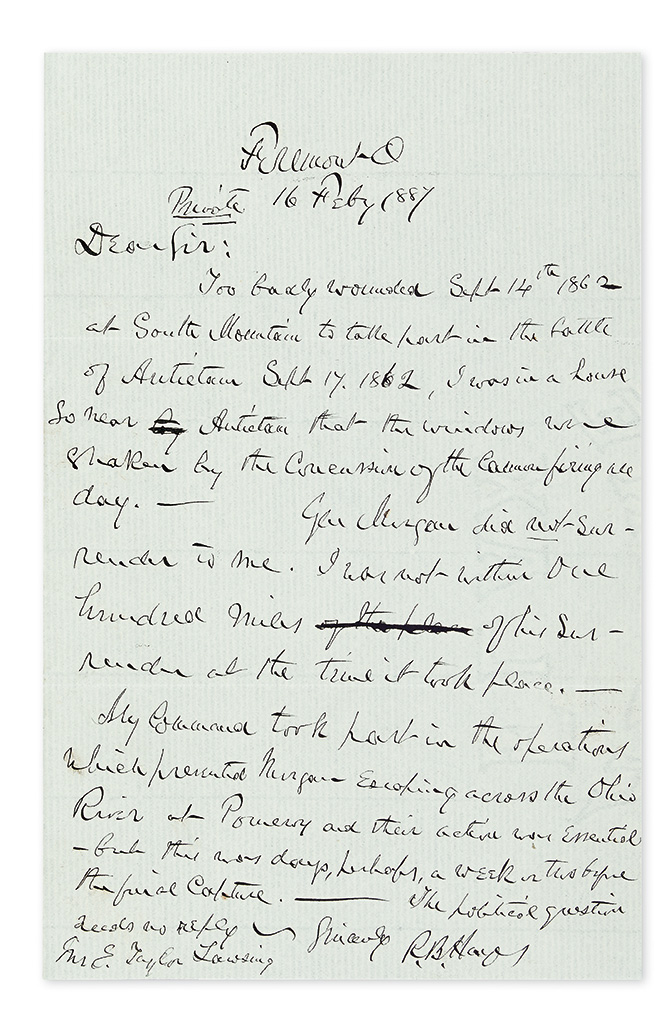 Fremont O
Private 16 Feby 1887
Dear Sir:
Too badly wounded Sept 14th 1862
at South Mountain to take part in the battle
of Antietam Sept 17. 1862, I was in a house
so near Antietam that the windows were
shaken by the concussion of the cannon firing all
day. —
Gen Morgan did not sur-
render to me. I was not within one
hundred miles of the place of his sur-
render at the time it took place. —
My command took part in the operations
which prevented Morgan escaping across the Ohio
River at Pomeroy and their action was essential
- but this was days, perhaps, a week or two before
the final capture. — The political question
needs no reply — Sincerely R.B. Hayes
Mr E. Taylor